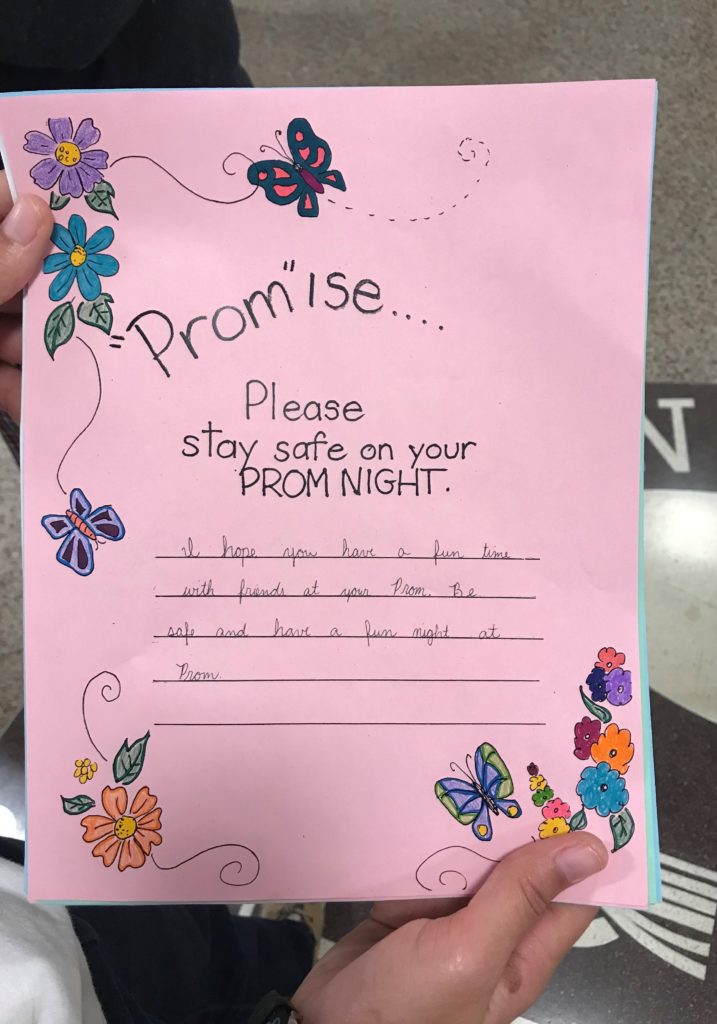 "Prom"ise....
Please
stay safe on your
PROM NIGHT.
I hope you have a fun time
with friends at your Prom. Be
safe and have a fun night at
Prom.
N